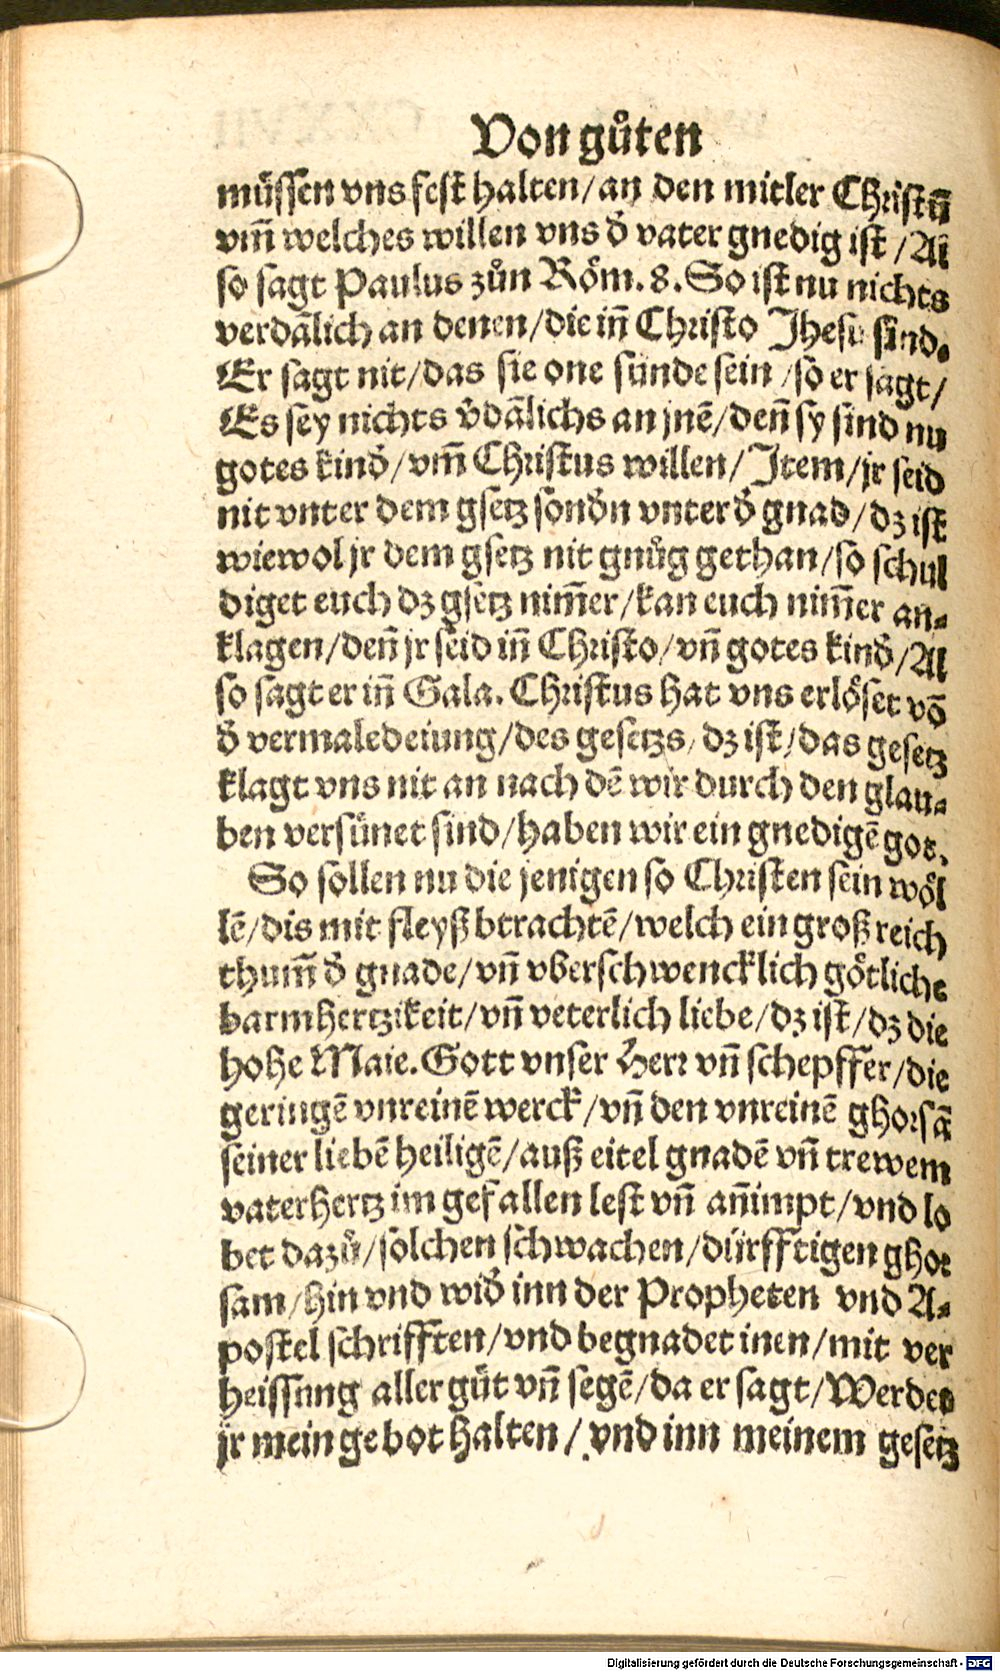 Von gůten
müssen vns fest halten/an den mitler Christū
vm̄ welches willen vns d̕ vater gnedig ist/Al
so sagt Paulus zůn Röm. 8. So ist nu nichts
verdālich an denen/die iñ Christo Jhesu sind.
Er sagt nit/das sie one sünde sein/so er sagt/
Es sey nichts v̕dālichs an jnē/deñ sy sind nu
gotes kind̕/vm̄ Christus willen/Item/jr seid
nit vnter dem gsetz sond̕n vnter d̕ gnad/dz ist
wiewol jr dem gsetz nit gnůg gethan/so schul
diget euch dz gsetz nim̄er/kan euch nim̄er an-
klagen/deñ jr seid iñ Christo/vñ gotes kind̕/Al
so sagt er iñ Gala. Christus hat vns erlöset vō
d̕ vermaledeiung/des gesetzs/dz ist/das gesetz
klagt vns nit an nach dē wir durch den glau-
ben versünet sind/haben wir ein gnedigē got.
So sollen nu die jenigen so Christen sein wöl
lē/dis mit fleyß btrachtē/welch ein groß reich
thum̄ d̕ gnade/vñ vberschwencklich götliche
barmhertzikeit/vñ veterlich liebe/dz ist/dz die
hohe Maie. Gott vnser Herr vñ schepffer/die
geringē vnreinē werck/vñ den vnreinē ghorsā
seiner liebē heiligē/auß eitel gnadē vñ trewem
vaterhertz im gefallen lest vñ añimpt/vnd lo
bet dazů/solchen schwachen/dürfftigen ghor
sam/hin vnd wid̕ inn der Propheten vnd A-
postel schrifften/vnd begnadet inen/mit ver
heissung aller güt vñ segē/da er sagt/Werdet
jr mein gebot halten/vnd inn meinem gesetz
Digitalisierung gefördert durch die Deutsche Forschungsgemeinschaft - DFG